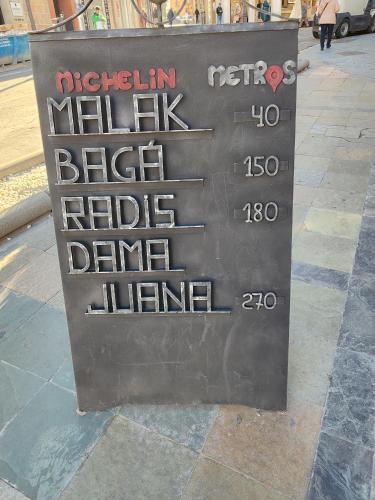 MICHELIN METROS
MALAK 40
BAGÁ 150
RADIS 180
DAMA
JUANA 270